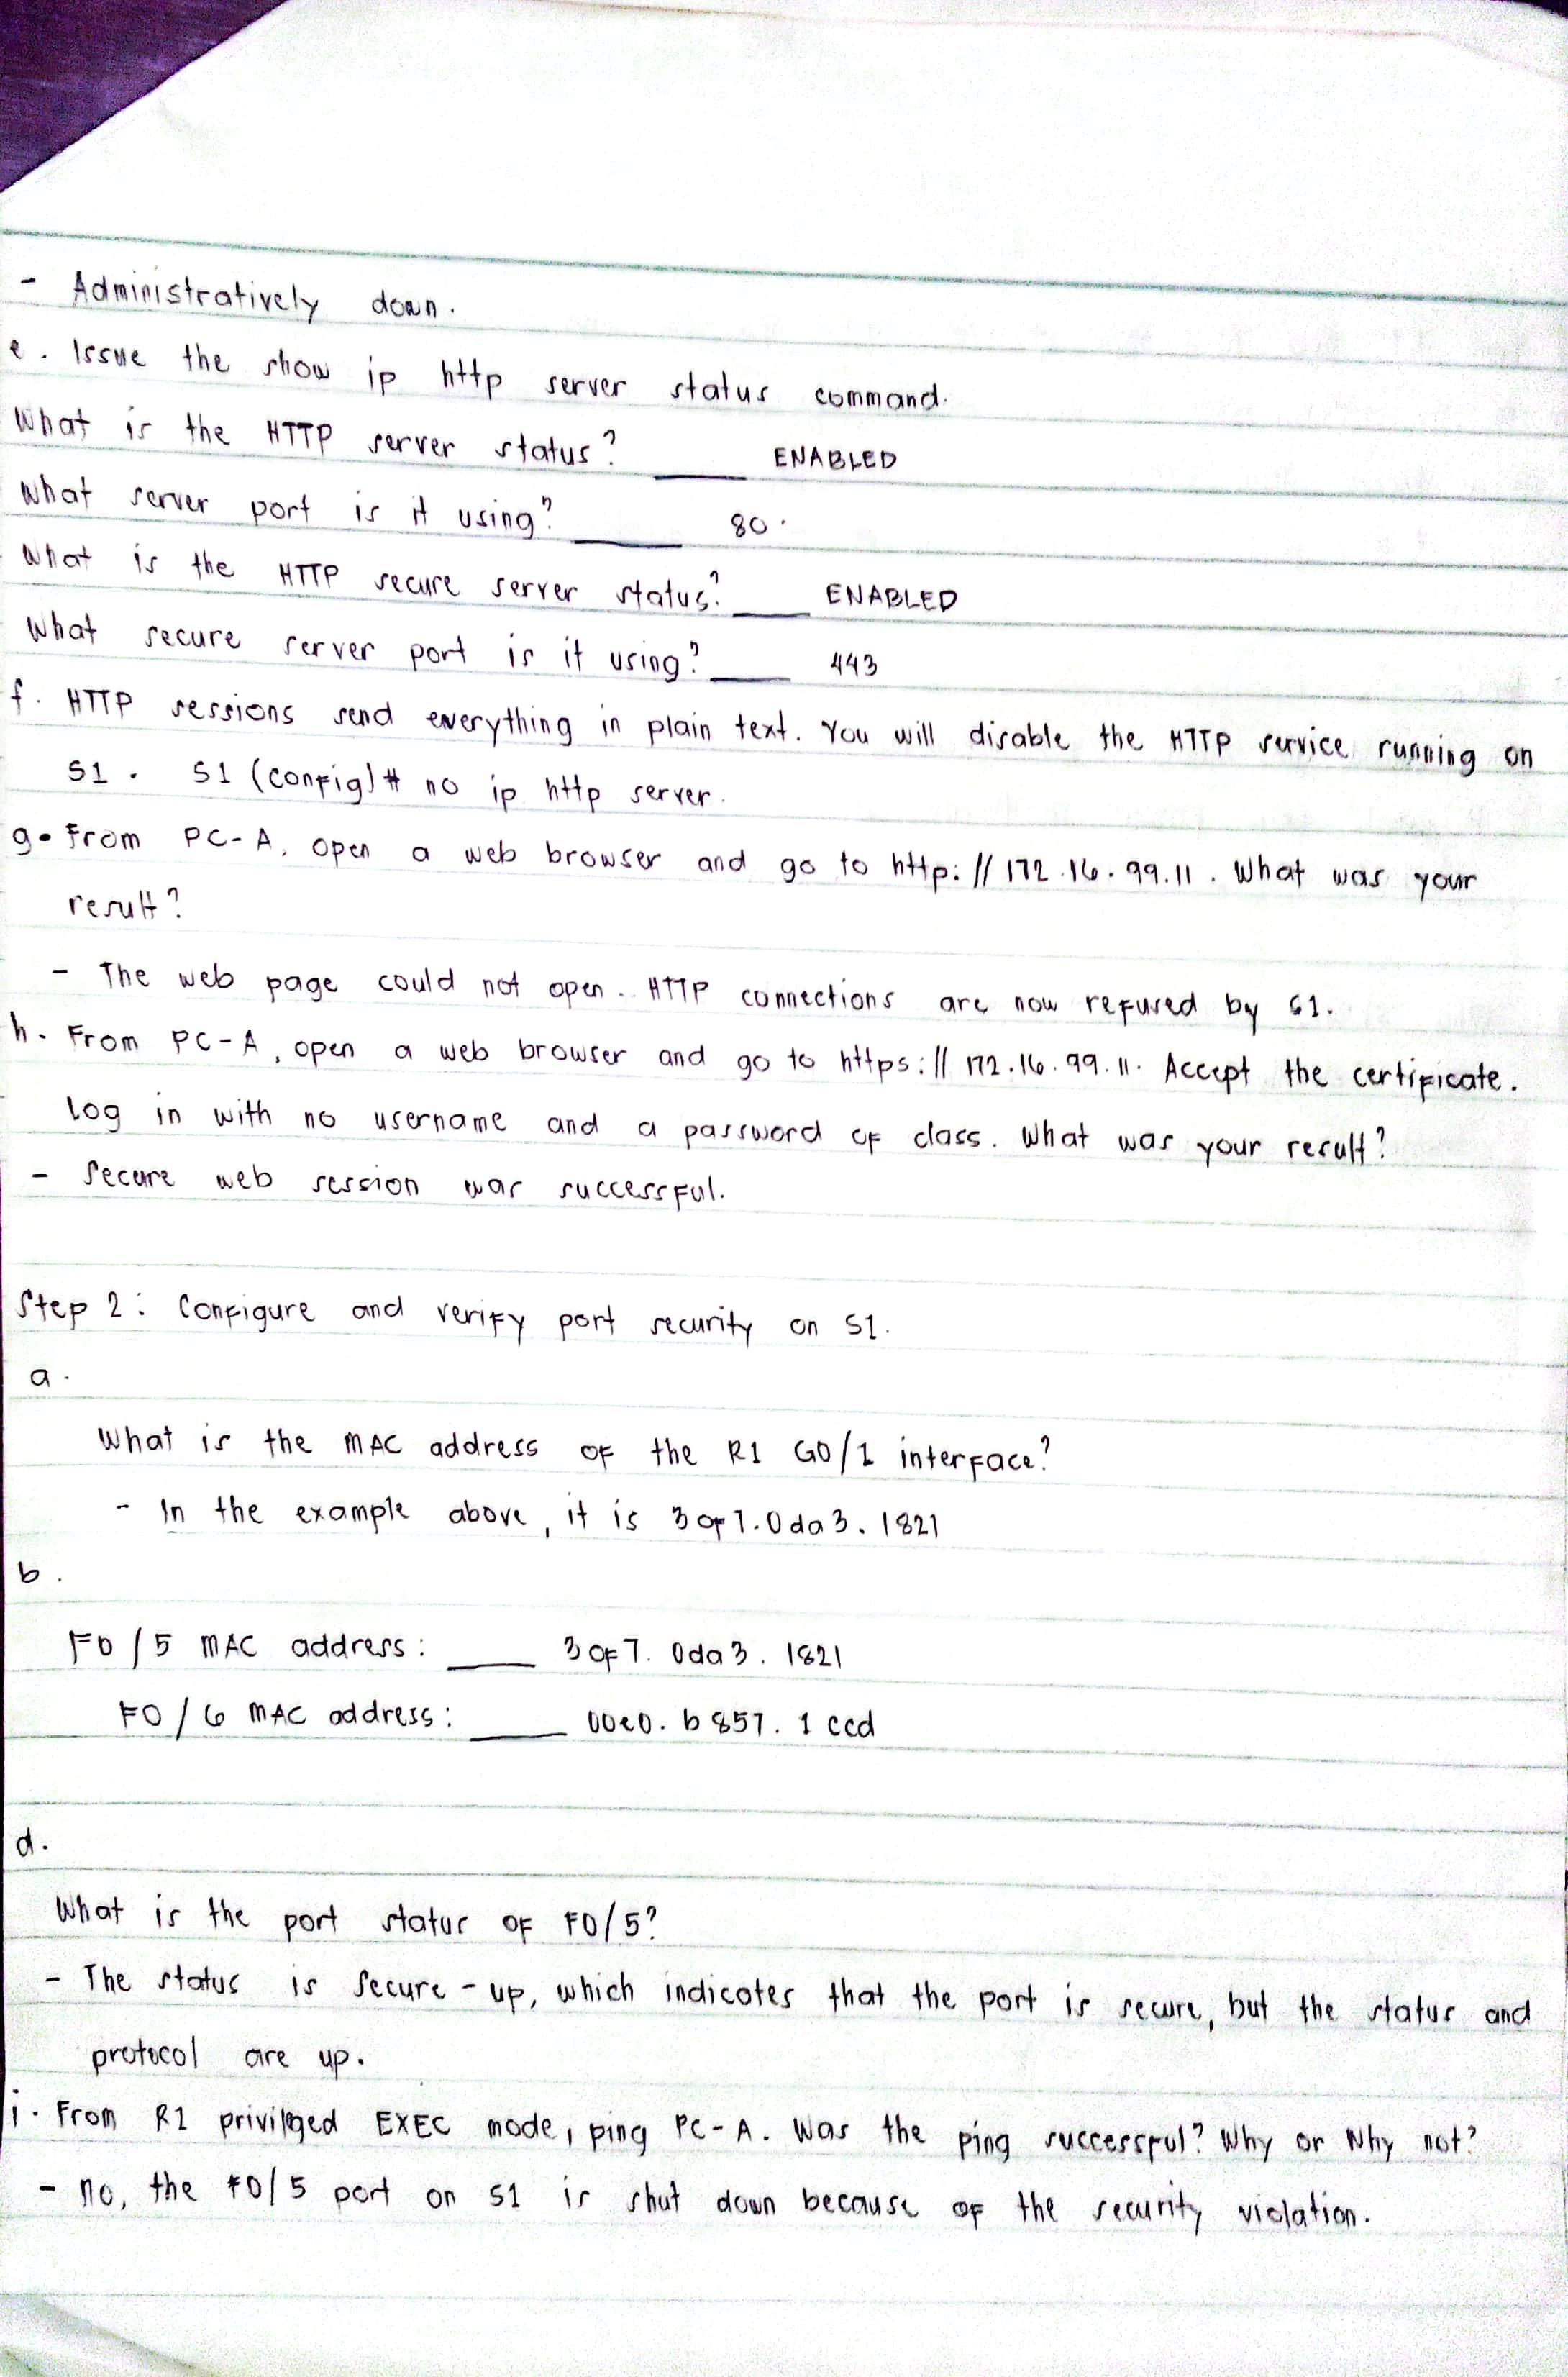 - Administratively down.
e. Issue the show ip http server status command.
What is the HTTP server status? ____ ENABLED
What server port is it using? ____ 80.
What is the HTTP secure server status? ____ ENABLED
What secure server port is it using? ____ 443
f. HTTP sessions send everything in plain text. You will disable the HTTP service running on
S1. S1 (config)# no ip http server.
g. From PC-A, open a web browser and go to http://172.16.99.11. What was your
result?
- The web page could not open. HTTP connections are now refused by S1.
h. From PC-A, open a web browser and go to https://172.16.99.11. Accept the certificate.
Log in with no username and a password of class. What was your result?
- Secure web session was successful.
Step 2: Configure and verify port security on S1.
a.
What is the MAC address of the R1 G0/1 interface?
- In the example above, it is 30f7.0da3.1821
b.
F0/5 MAC address: ____ 30f7.0da3.1821
F0/6 MAC address: ____ 00e0.b857.1ccd
d.
What is the port status of F0/5?
- The status is Secure-up, which indicates that the port is secure, but the status and
protocol are up.
i. From R1 privileged EXEC mode, ping PC-A. Was the ping successful? Why or Why not?
- no, the F0/5 port on S1 is shut down because of the security violation.